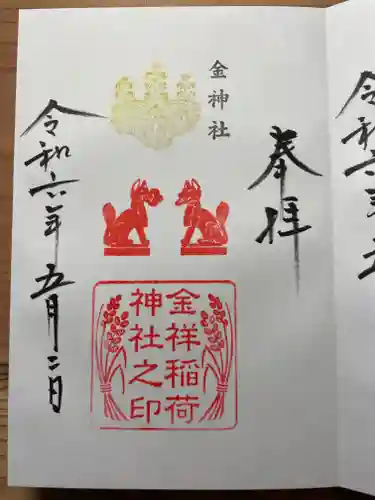 奉拝
金神社
金祥稲荷
神社之印
令和六年五月二日
令和六年五